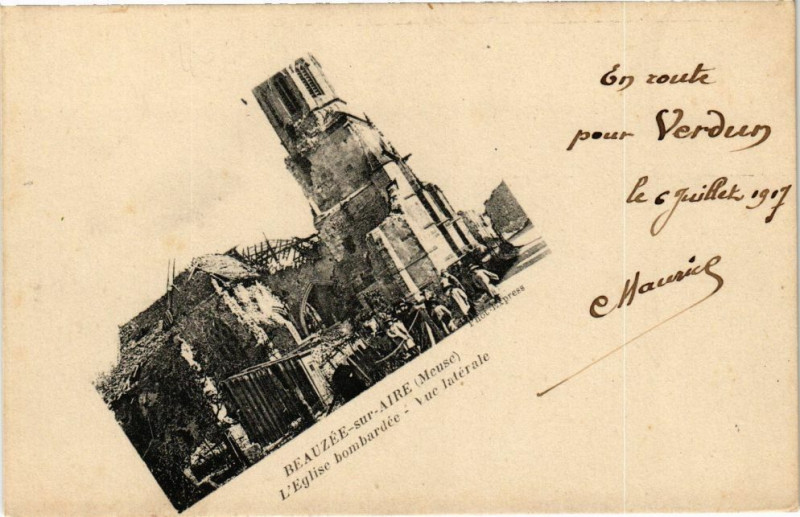 En route
pour Verdun
le 6 Juillet 1917
Maurice
BEAUZÉE-sur-AIRE (Meuse)
L'Eglise bombardée - Vue latérale